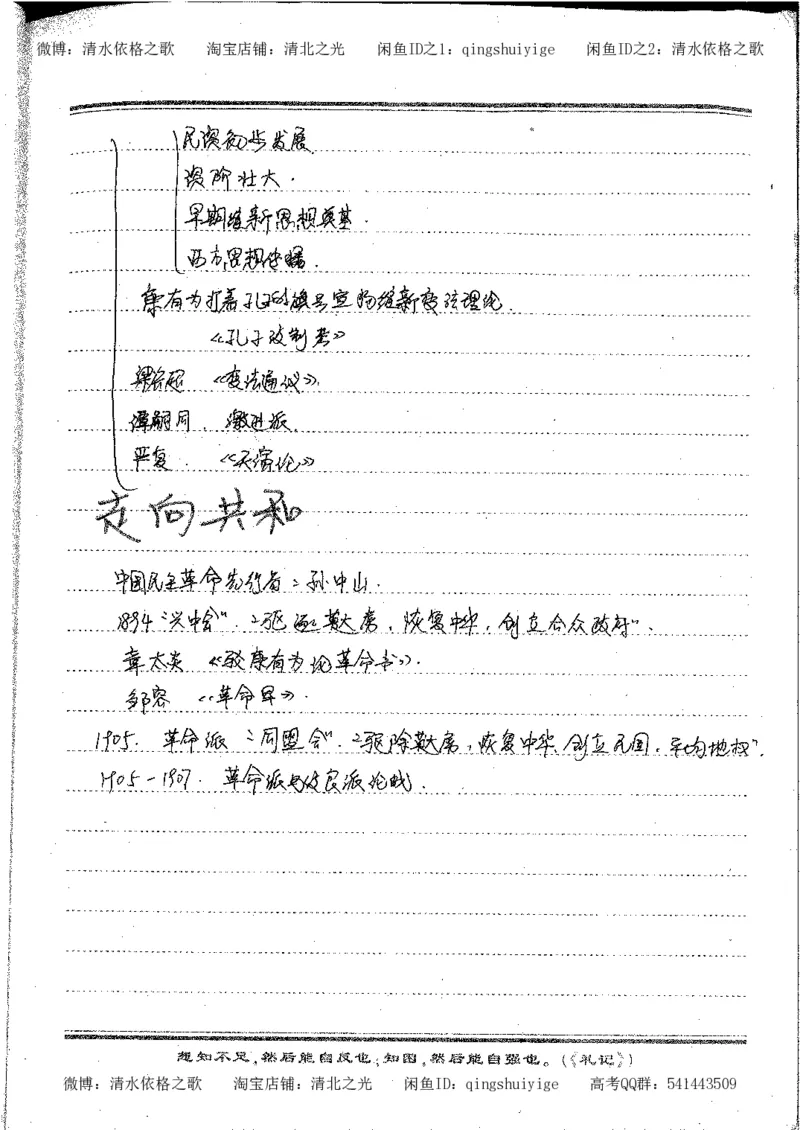 微博：清水依格之歌 淘宝店铺：清北之光 闲鱼ID之1：qingshuiyige 闲鱼ID之2：清水依格之歌
民资初步发展
资阶壮大.
早期维新思想奠基.
西方思想传播.
康有为打着孔子的旗号宣扬维新变法理论.
《孔子改制考》
梁启超 《变法通议》.
谭嗣同. 激进派.
严复. 《天演论》
走向共和
中国民主革命先行者：孙中山.
1894“兴中会”. “驱逐鞑虏，恢复中华，创立合众政府”.
章太炎 《驳康有为论革命书》.
邹容 《革命军》.
1905. 革命派“同盟会”. “驱除鞑虏，恢复中华，创立民国，平均地权”.
1905-1907. 革命派与改良派论战.
知不足，然后能自反也；知困，然后能自强也。(《礼记》)
微博：清水依格之歌 淘宝店铺：清北之光 闲鱼ID：qingshuiyige 高考QQ群：541443509